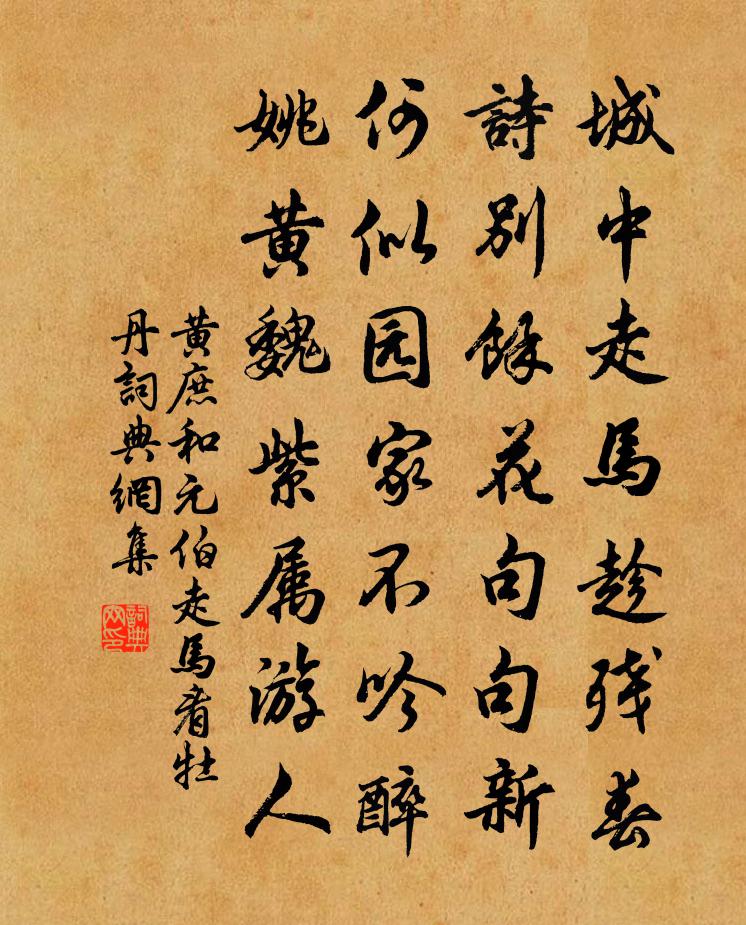 城中走馬趁残春
詩別餘花句句新
何似园家不吟醉
姚黄魏紫属游人
黄庶和元伯走馬看牡
丹詞典網集
詞典網印